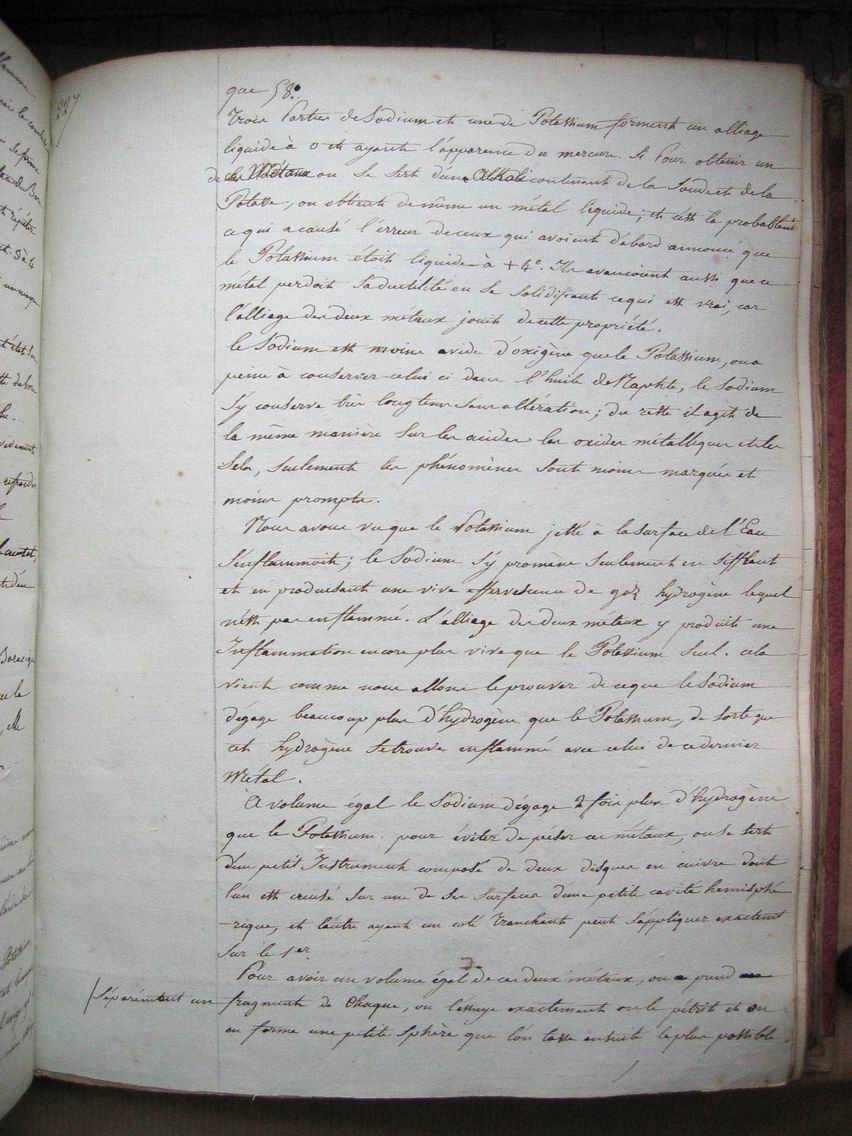 227
que 58.
trois Parties de Sodium et une de Potassium forment un alliage
liquide à 0 et ayant l'apparence du mercure. Si Pour obtenir un
de ces Métaux on se sert d'un Alkali contenant de la Soude et de la
Potasse, on obtient de même un métal liquide; et c'est là probablemt
ce qui a causé l'erreur de ceux qui avoient d'abord annoncé que
le Potassium étoit liquide à +4°. Ils avancoient aussi que ce
métal perdoit sa ductilité en se solidifiant ce qui est vrai, car
l'alliage des deux métaux jouit de cette propriété.
le Sodium est moins avide d'oxigène que le Potassium, on a
peine à conserver celui ci dans l'huile de Naphte, le Sodium
s'y conserve très longtems sans altération; du reste il agit de
la même manière sur les acides les oxides métalliques et les
Sels, seulement les phénomènes sont moins marqués et
moins prompts.
Nous avons vu que le Potassium jetté à la surface de l'Eau
s'enflammoit; le Sodium s'y promène seulement en sifflant
et en produisant une vive effervescence de gaz hydrogène lequel
n'est pas enflammé. L'alliage des deux métaux y produit une
Inflammation encore plus vive que le Potassium seul. cela
vient comme nous allons le prouver de ce que le Sodium
dégage beaucoup plus d'hydrogène que le Potassium, de sorte que
cet hydrogène se trouve enflammé avec celui de ce dernier
Métal.
A volume égal le Sodium dégage 2 fois plus d'hydrogène
que le Potassium. pour éviter de peser ces métaux, on se sert
d'un petit Instrument composé de deux disques en cuivre dont
l'un est creusé sur une de ses surfaces d'une petite cavité hemisphé
-rique, et l'autre ayant un coté tranchant peut s'appliquer exactemt
sur le 1er.
Pour avoir un volume égal de ces deux métaux, on prend
séparément un fragment de chaque, on l'essuye exactement on le pétrit et on
en forme une petite sphère que l'on tasse ensuite le plus possible